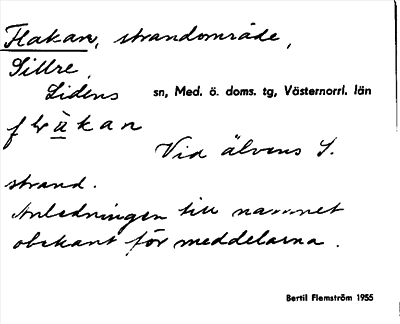 Flakan, strandområde,
Sillre,
Lidens sn, Med. ö. doms. tg, Västernorrl. län
Vid älvens S.
strand.
Anledningen till namnet
obekant för meddelarna.
Bertil Flemström 1955